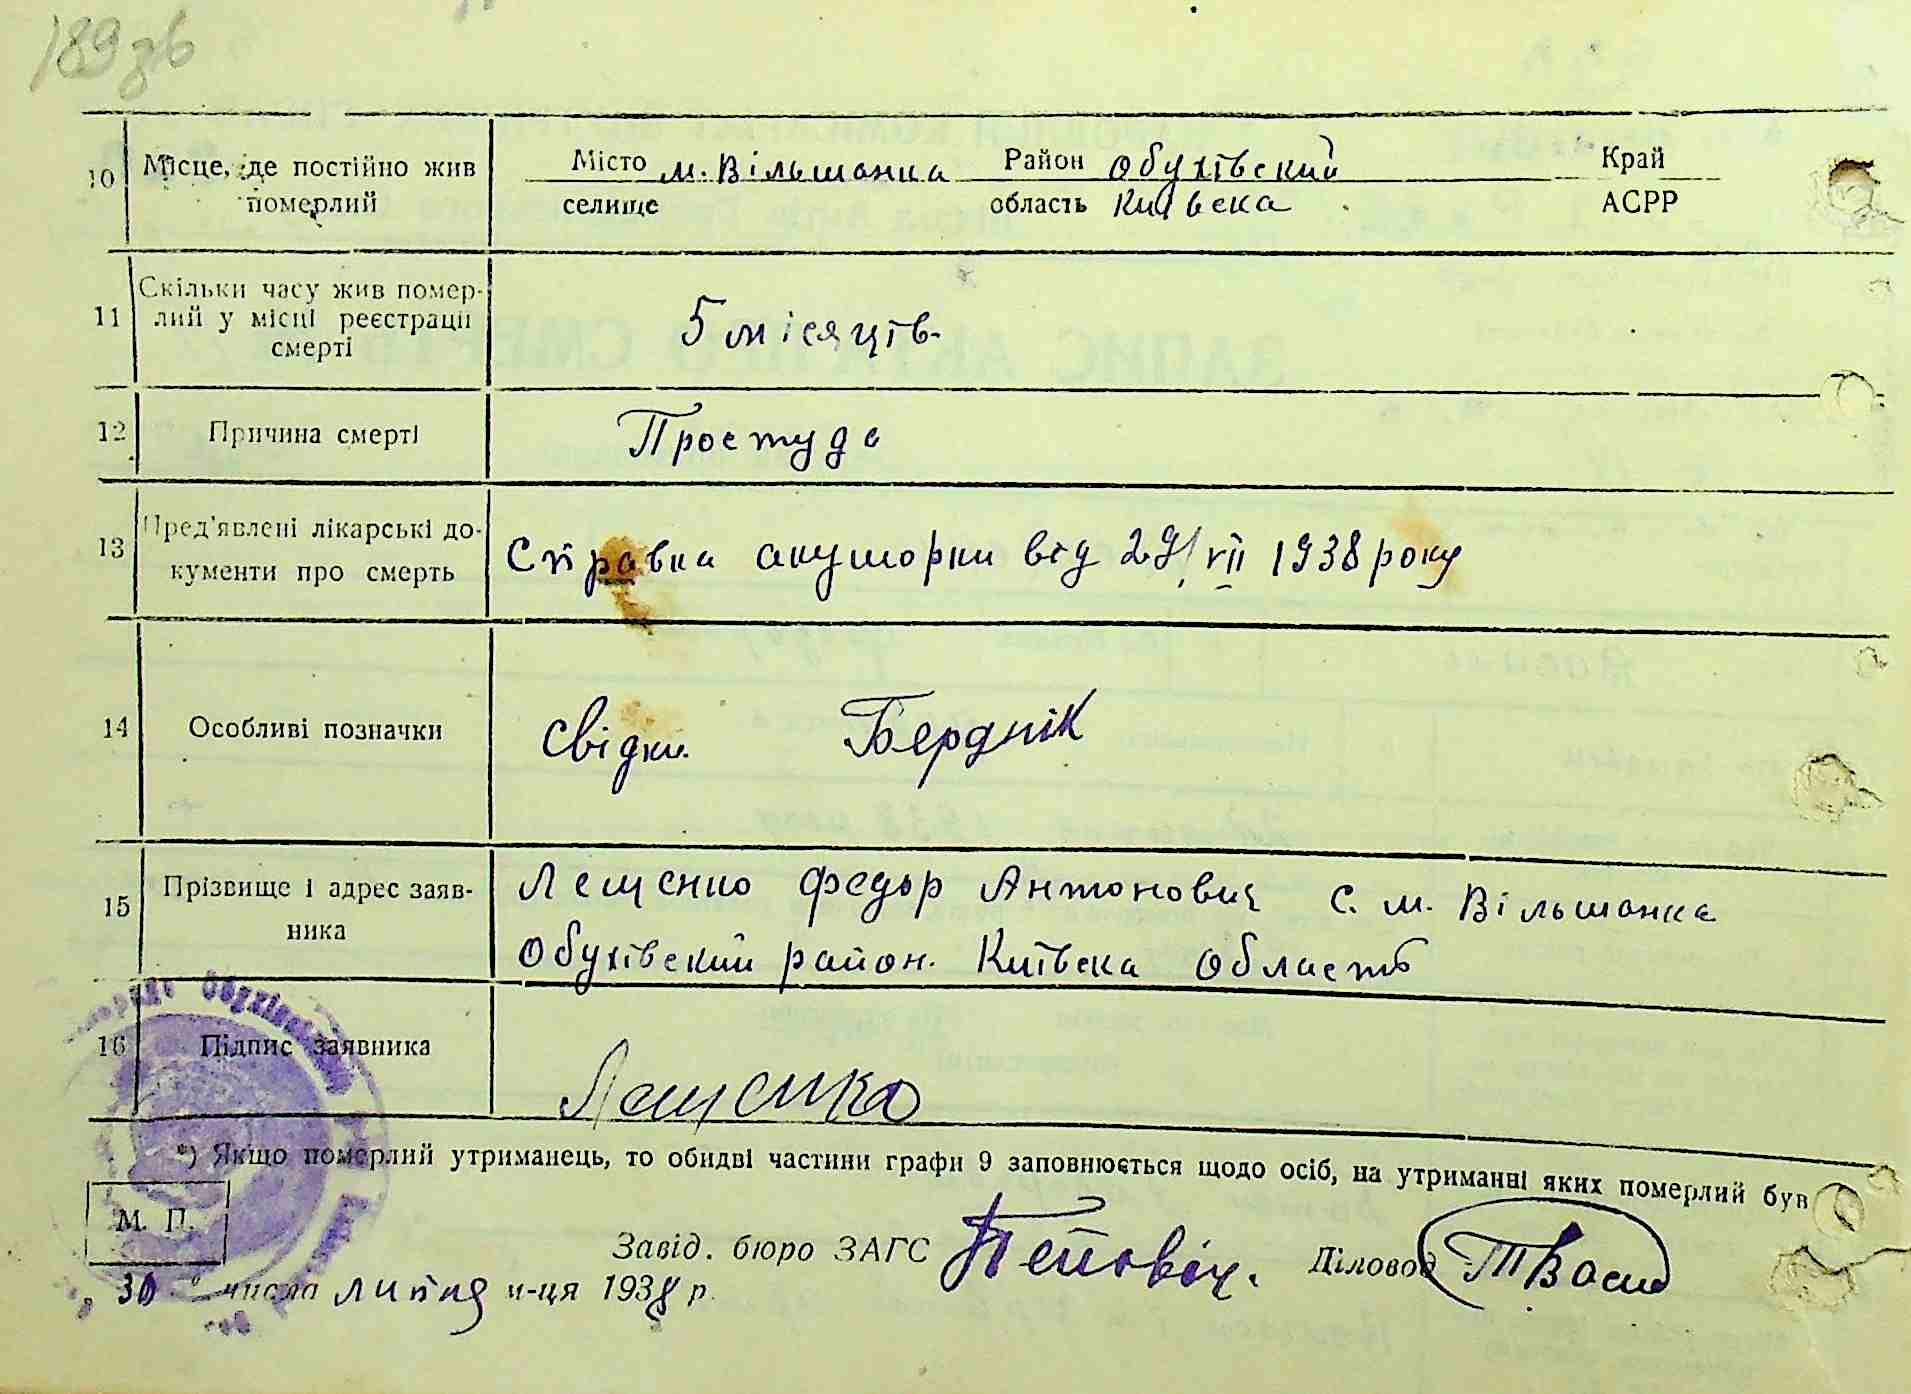 189 зв
10 Місце, де постійно жив померлий
Місто м. Вільшанка Район Обухівский Край
селище область Київска АСРР
11 Скільки часу жив помер-
лий у місці реєстрації
смерті
5 місяців.
12 Причина смерті Простуда
13 Пред'явлені лікарські до-
кументи про смерть
Справка акушорки від 29/VII 1938 року
14 Особливі позначки свідки. Берднік
15 Прізвище і адрес заяв-
ника
Лещенко Федор Антонович с. м. Вільшанка
Обухівский район. Київска область
16 Підпис заявника Лещенко
*) Якщо померлий утриманець, то обидві частини графи 9 заповнюється щодо осіб, на утриманні яких померлий був
М. П.
Завід. бюро ЗАГС Діловод
30 " числа липня м-ця 1938 р.